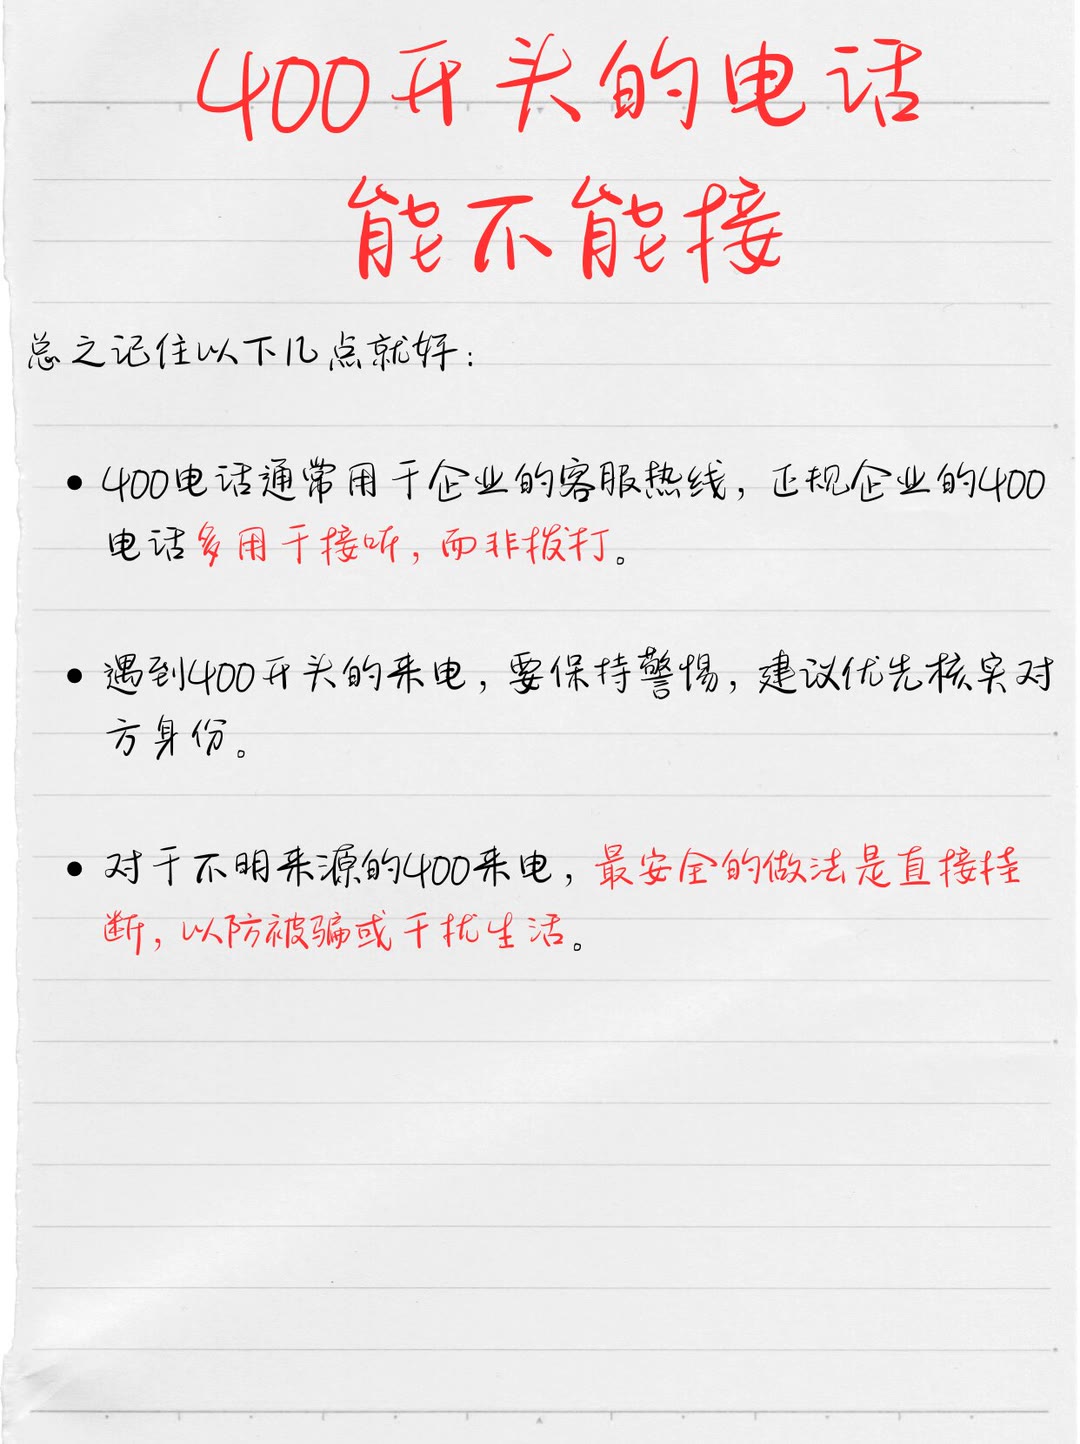 400开头的电话
能不能接
总之记住以下几点就好：
• 400电话通常用于企业的客服热线，正规企业的400
电话多用于接听，而非拨打。
• 遇到400开头的来电，要保持警惕，建议优先核实对
方身份。
• 对于不明来源的400来电，最安全的做法是直接挂
断，以防被骗或干扰生活。